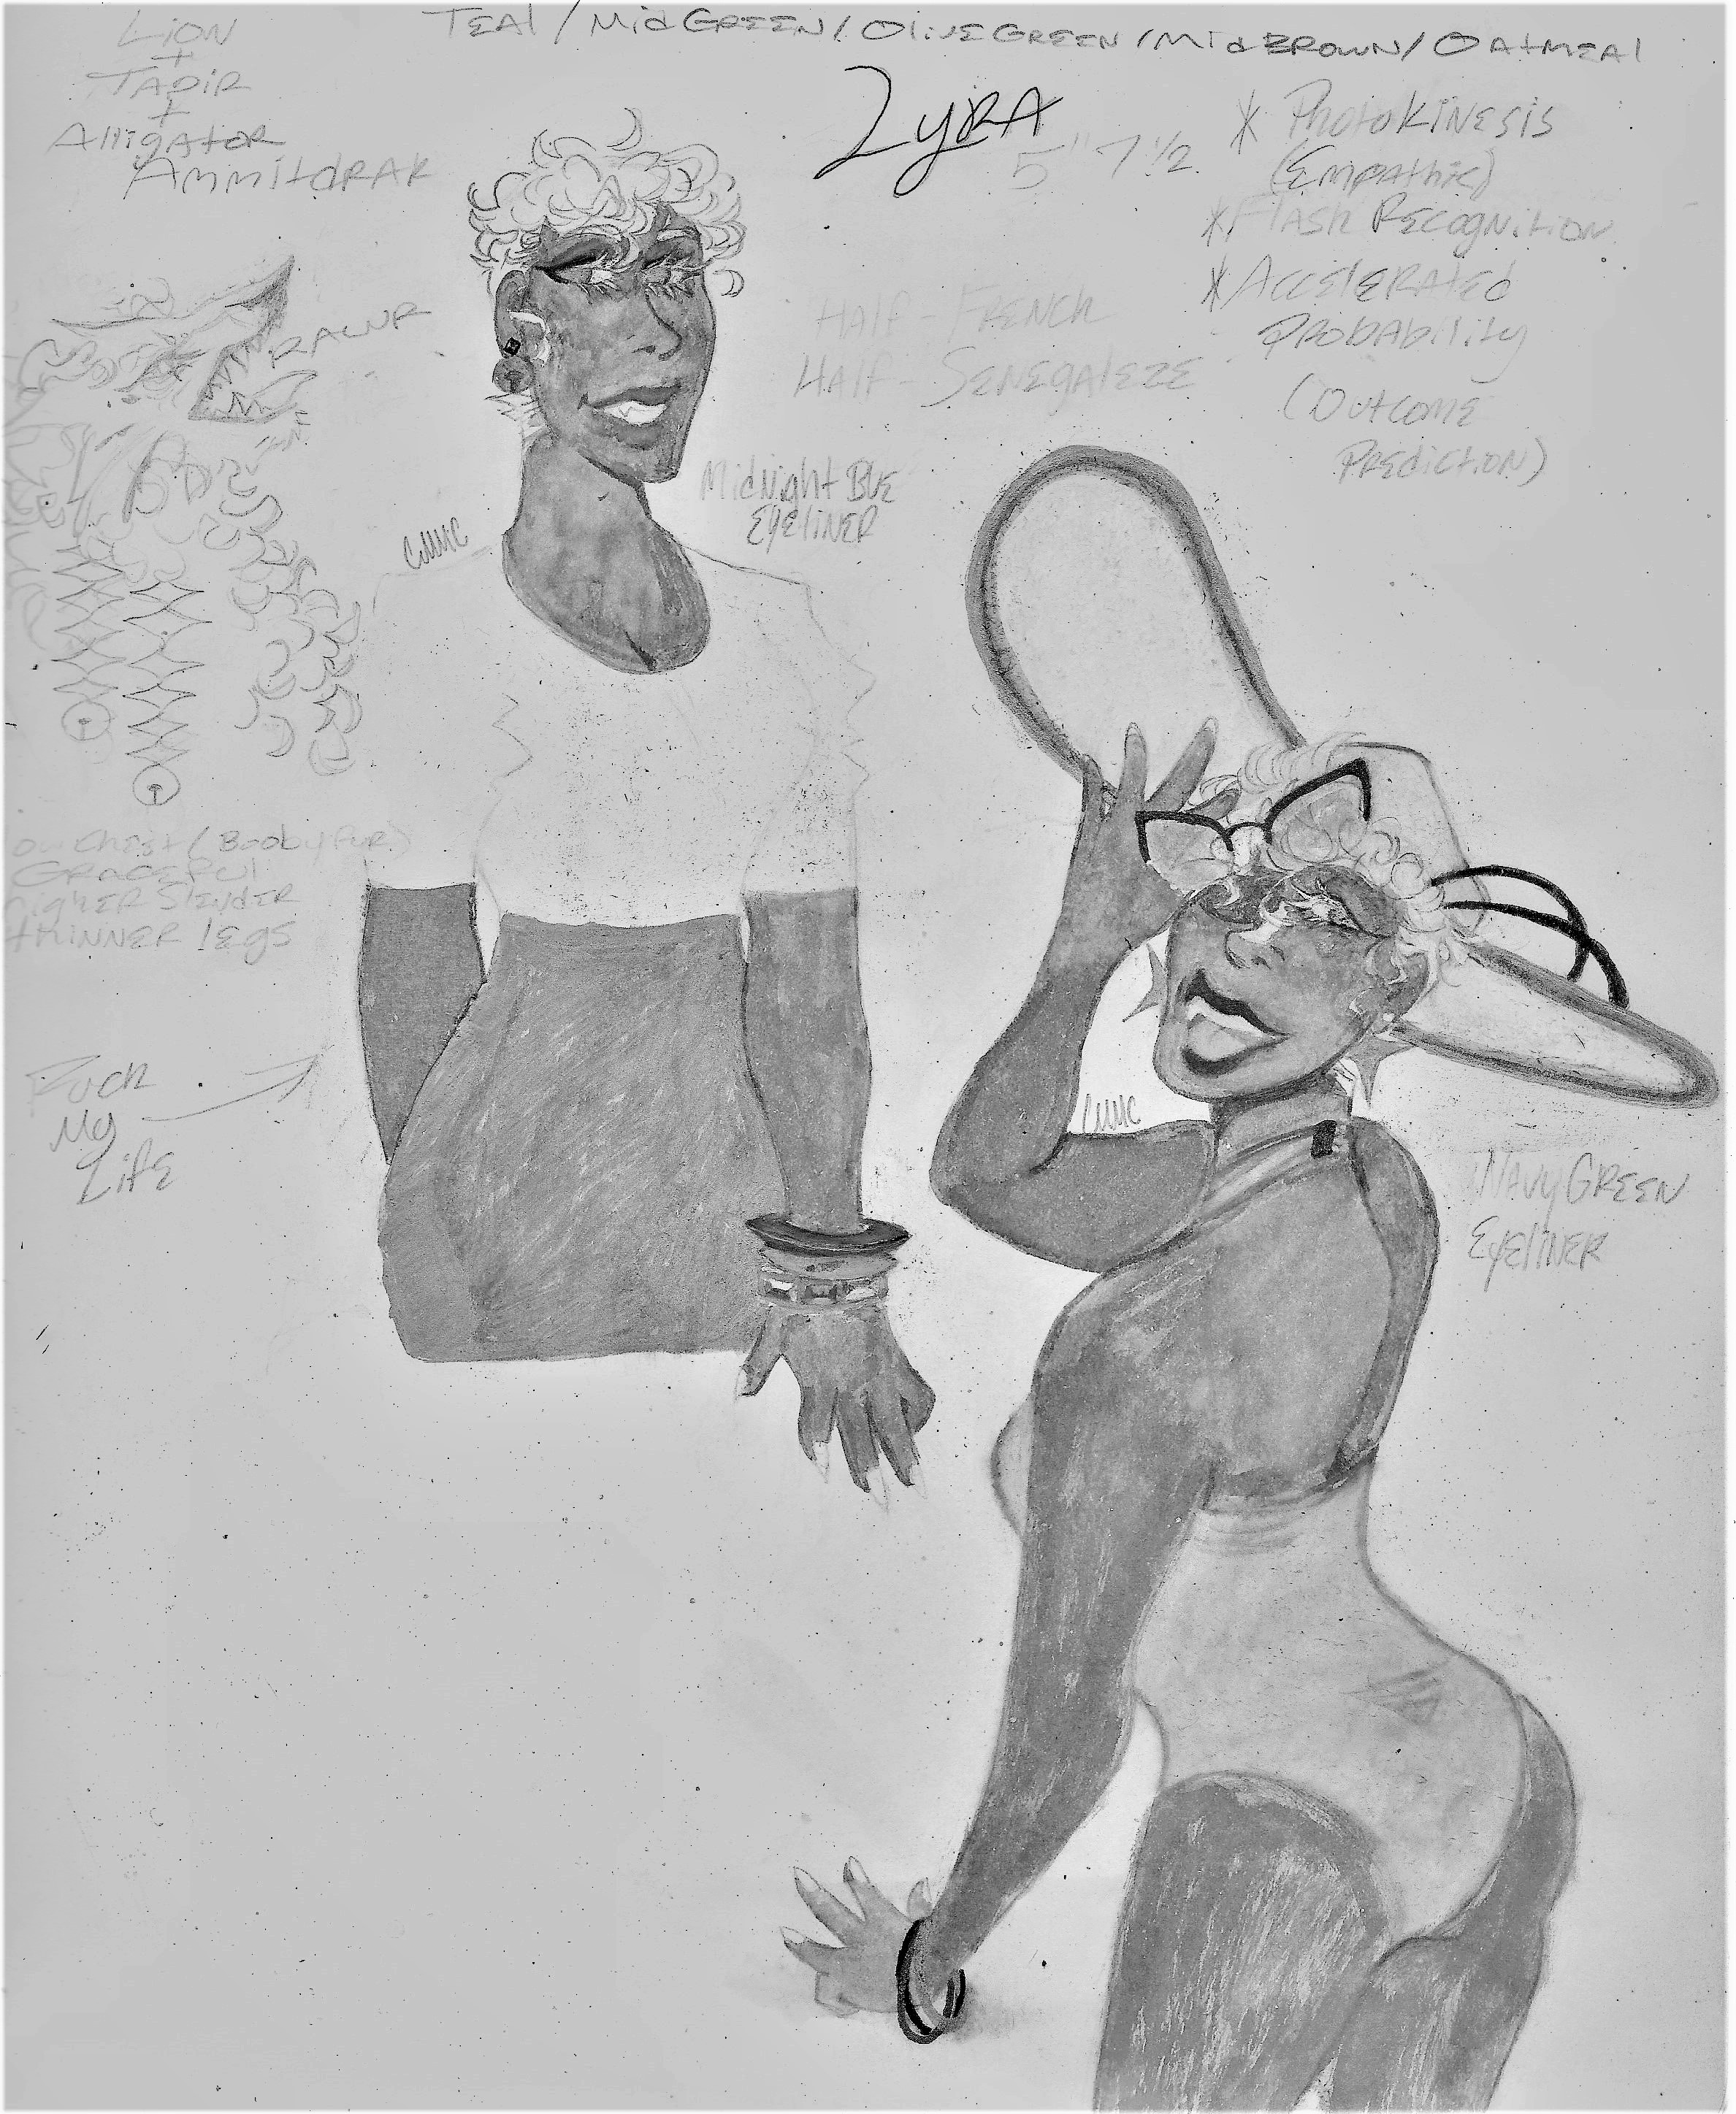 TEAL / MID GREEN / OLIVE GREEN / MID BROWN / OATMEAL
LION
+
TAPIR
+
ALLIGATOR
AMMITDRAK
LYRA
5" 7 1/2
* PHOTOKINESIS
(EMPATHIC)
* FLASH RECOGNITION
* ACCELERATED
PROBABILITY
(OUTCOME
PREDICTION)
RAWR
HALF-FRENCH
HALF-SENEGALEZE
MIDNIGHT BUE
EYELINER
CMMC
CHEST / (BOOBY FUR)
GRACEFUL
HIGHER SLENDER
THINNER LEGS
FUCK
MY
LIFE
CMMC
NAVY GREEN
EYELINER